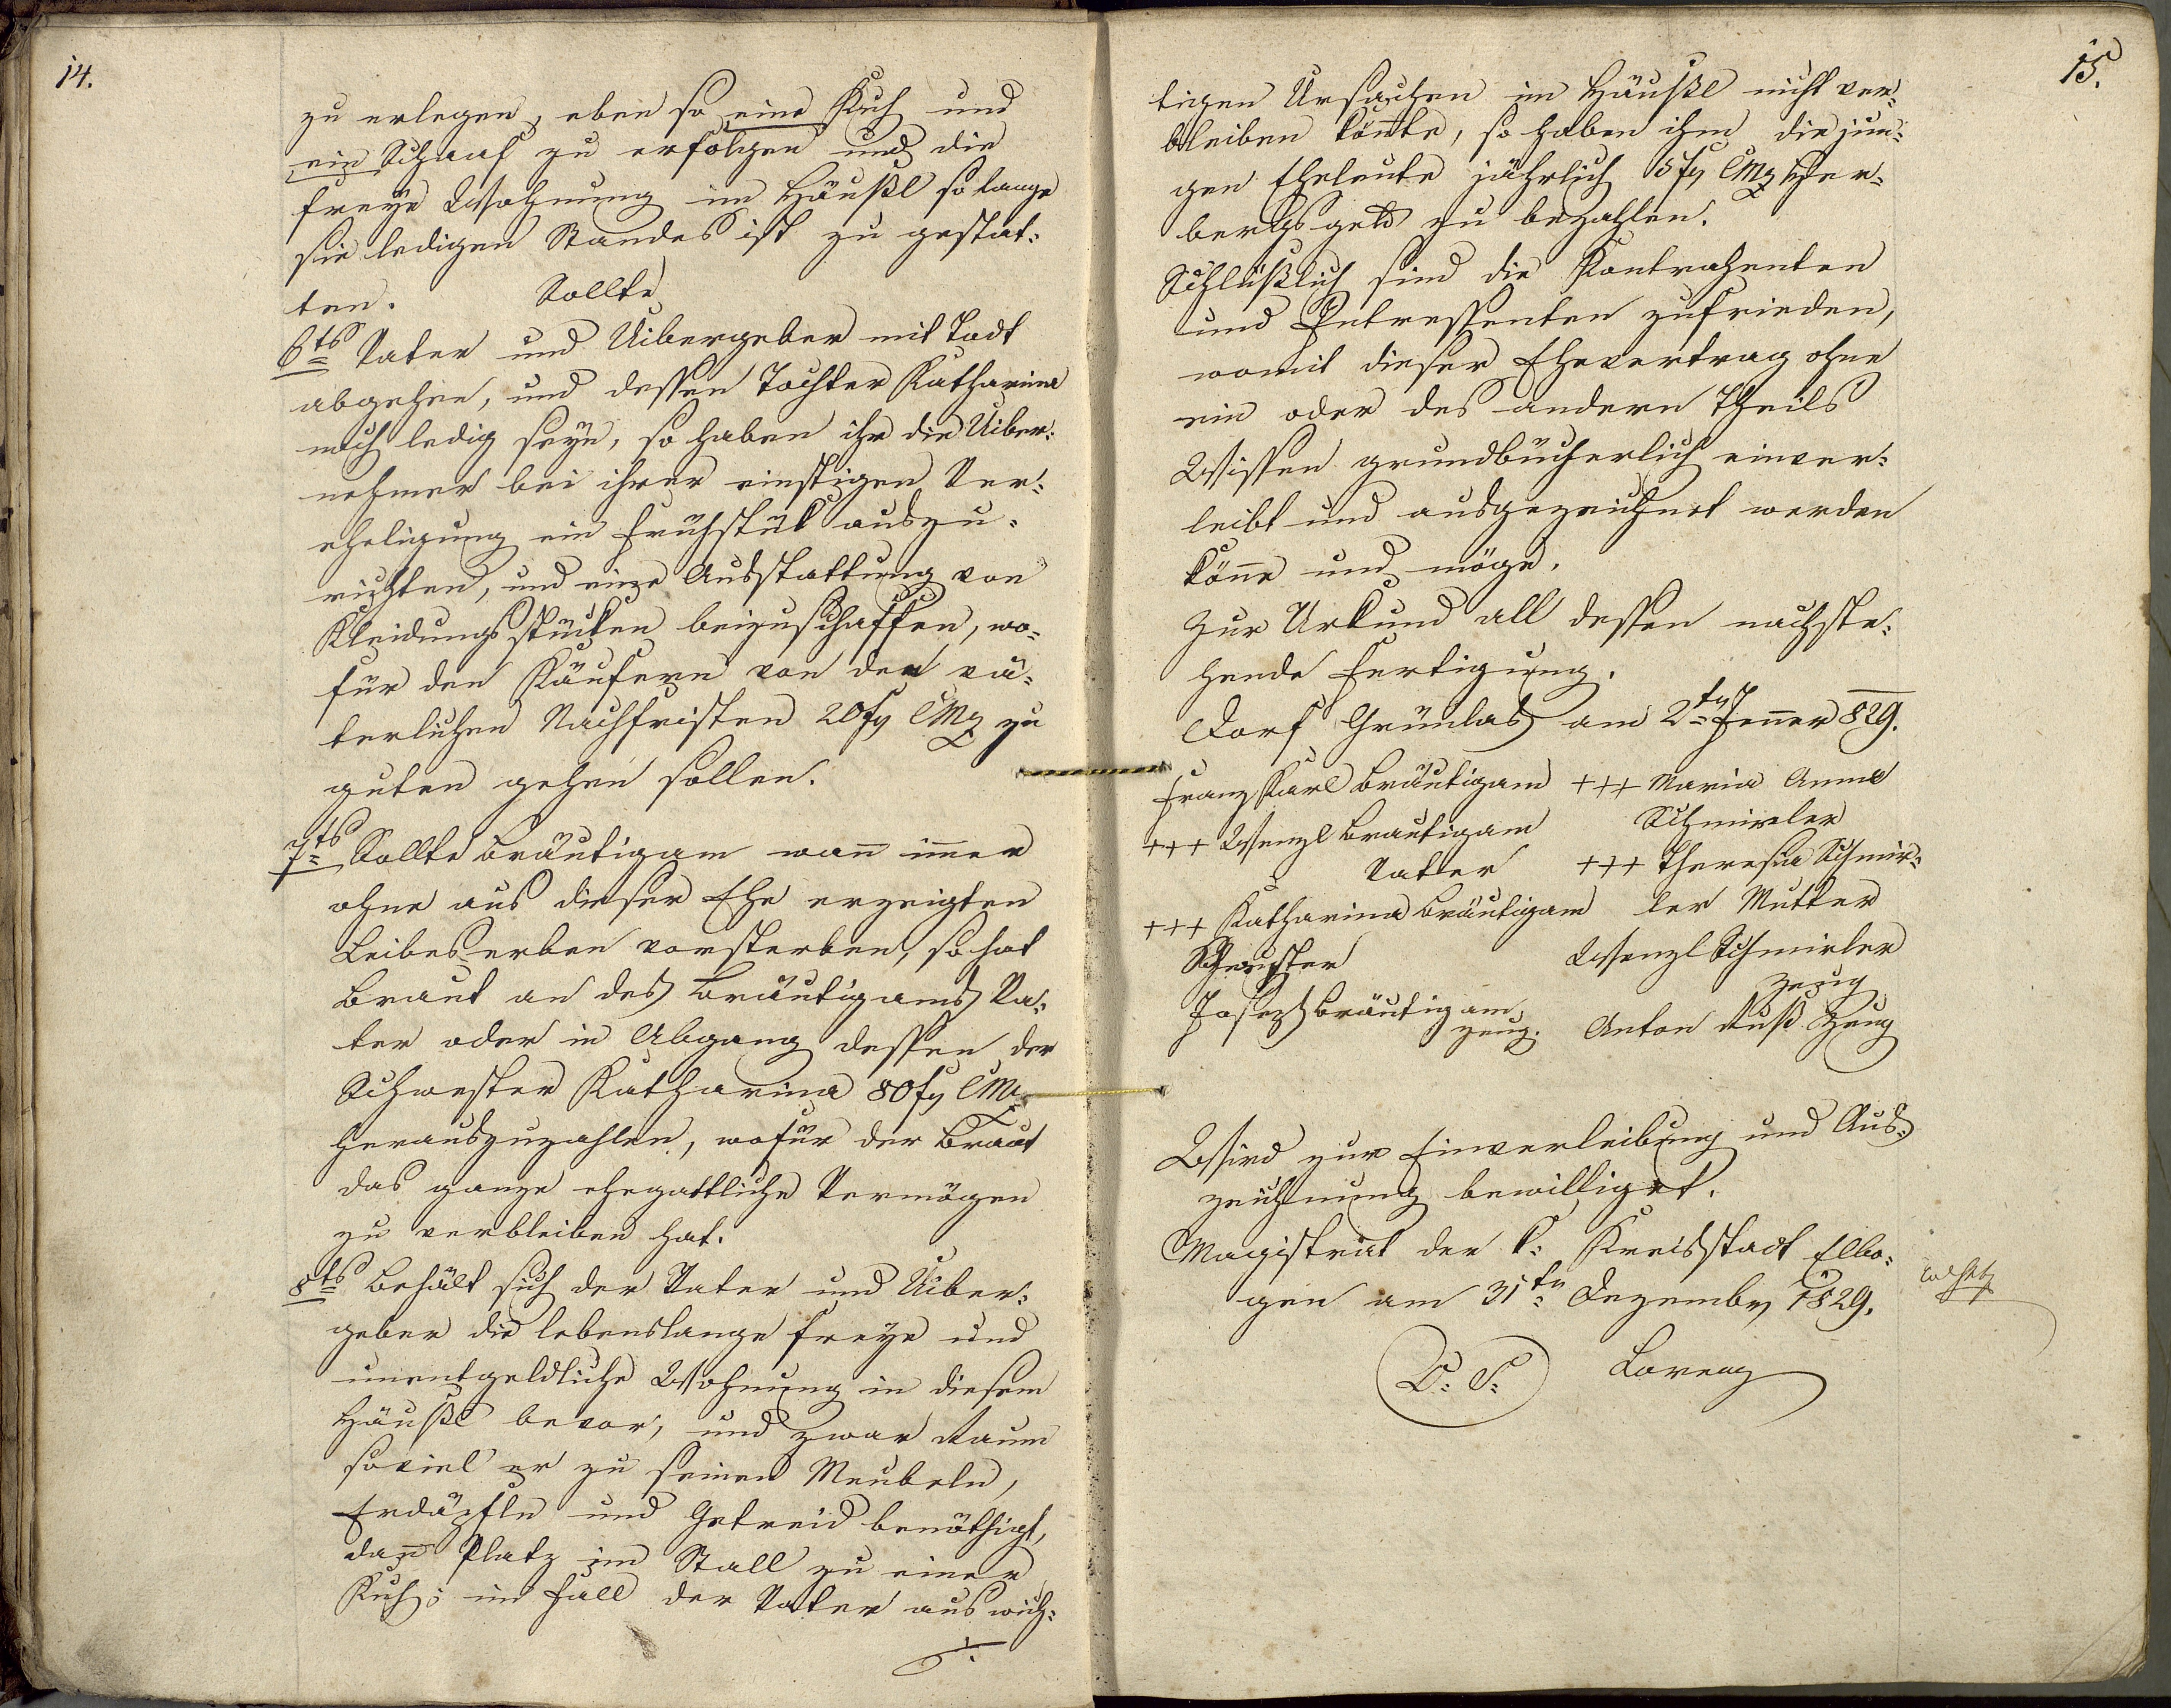 14.
zu erlegen, eben so eine Kuh und
ein Schaaf zu erfolgen und die
freye Wohnung im Häußl so lange
sie ledigen Standes ist zu gestat-
ten. Sollte
6tens Vater und Uibergeber mit Todt
abgehen, und dessen Tochter Katharina
noch ledig seyn, so haben ihr die Uiber-
nehmer bei ihrer einstigen Ver-
eheligung ein Frühstük auszu-
richten, und einge Ausstattung von
Kleidungsstücken beizuschaffen, wo-
für den Käufern von den vä-
terlichen Nachfristen 20 fr CMz zu
guten gehen sollen.
7ts Sollte Bräutigam wan imer
ohne aus dieser Ehe erzeigten
Leibeserben vorsterben, so hat
Braut an des Bräutigams Va-
ter oder in Abgang dessen der
Schwester Katharina 80 fr CMz
herauszuzahlen, wofür der Braut
das ganze ehegattliche Vermögen
zu verbleiben hat.
8ts Behält sich der Vater und Uiber-
geber die lebenslange freye und
unentgeldliche Wohnung in diesem
Häußl bevor, und zwar Raum
soviel er zu seinen Meubeln,
Erdäpfln und Getreid benöthigt,
dan Platz im Stall zu einer
Kuh; im Fall der Vater aus wich-
15.
tigen Ursachen im Häußl nicht ver-
bleiben könte, so haben ihm die jun-
gen Eheleute jährlich 5 fr CMz Her-
bergsgeld zu bezahlen.
Schlüßlich sind die Kontrahenten
und Intressenten zufrieden,
womit dieser Ehevertrag ohne
ein oder des andern Theils
Wissen grundbücherlich einver-
leibt und ausgezeichnet werden
köne und möge.
Zur Urkund all dessen nachste-
hende Fertigung.
Dorf Grünlas am 2ten Jener 829.
Franz Karl Bräutigam +++ Maria Anna
Schmirler
+++ Wenzl Brautigam
Vatter +++ Theresia Schmir-
+++ Katharina Bräutigam ler Mutter
Schwester Wenzl Schmirler
Zeug
Joseph Bräutigam
Zeug. Anton Ruß Zeug
Wird zur Einverleibung und Aus-
zeichnung bewilliget.
Magistrat der k: Kreisstadt Elbo-
gen am 31ten Dezembr 1829.
L: S: Lorenz